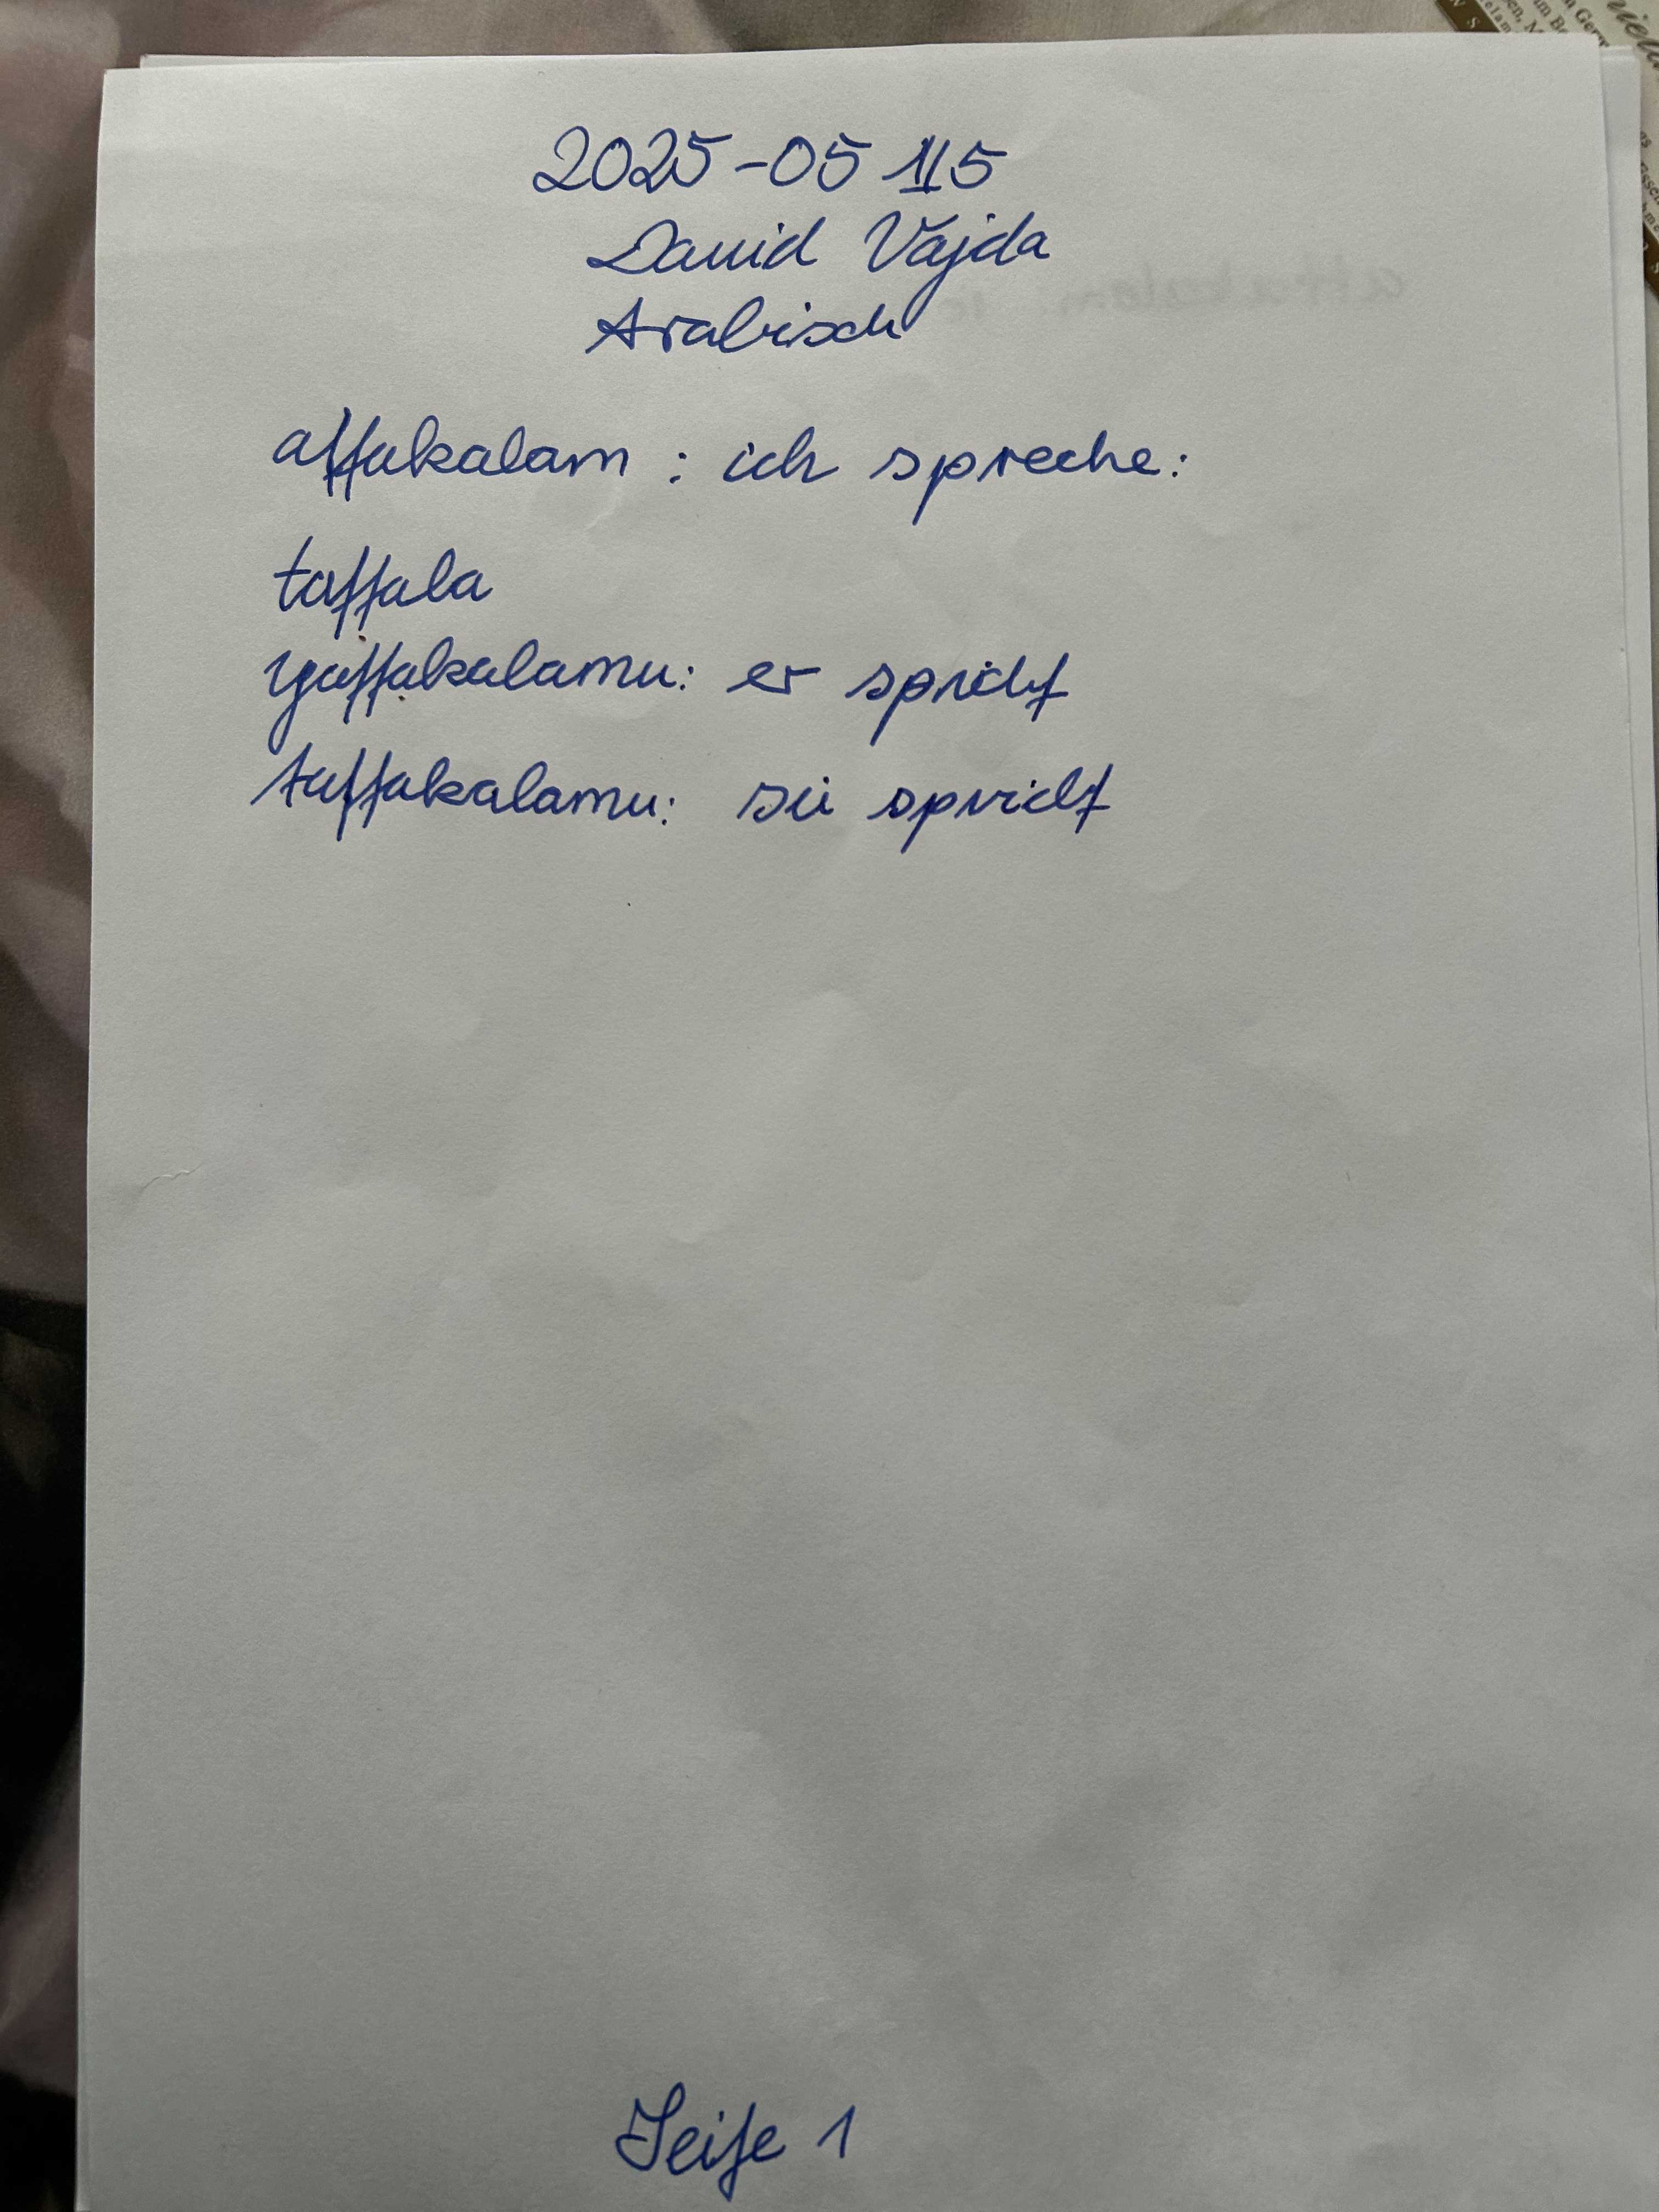 2025-05-15
David Vajda
Arabisch
attakalam : ich spreche:
tattala
yattakalamu: er spricht
tattakalamu: sie spricht
Seite 1